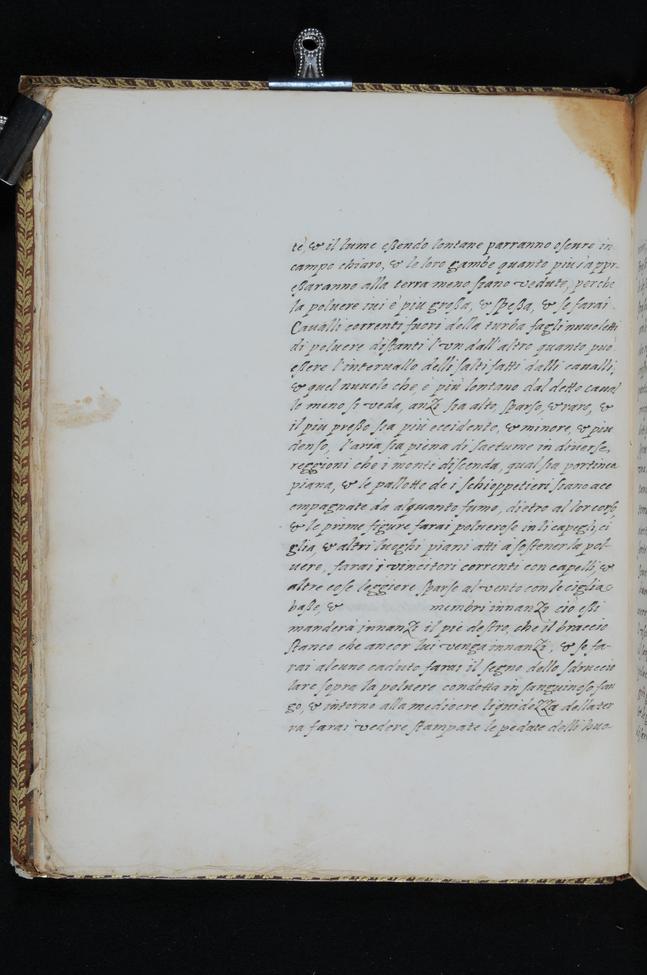 te, & il lume eßendo lontane parranno oscure in
campo chiaro, & le loro gambe quanto piu s'appr-
eßaranno alla terra meno siano vedute, perche
la poluere iui è piu großa, & speßa, & se farai
Caualli correnti fuori della turba fagli nuuoletti
di poluere distanti l'vn dall'altro quanto può
eßere l'interuallo delli salti fatti dalli caualli,
& quel nuuolo che, è più lontano dal detto caual
lo meno si veda, anzi sia alto, sparso, & raro, &
il piu preßo sia più euidente, & minore, & piu
denso, l'aria sia piena di saettume in diuerse,
reggioni che i monti discenda, qual sia portinca
piana, & le pallotte de i schioppetieri siano acc
ompagnate da alquanto fumo, dietro al lor corso,
& le prime figure farai poluerose in li capegli, ci
glia, & altri luoghi piani atti à sostener la pol-
uere, farai i vincitori correnti con capelli, &
altre cose leggiere sparse al vento con le ciglia
baße, & membri innanzi cio esi
manderà innanzi il piè destro, che il braccio
stanco che ancor lui venga innanzi, & se fa-
rai alcuno caduto farai il segno dello sdruccio
lare sopra la poluere condotta in sanguinoso, fan
go, & intorno alla mediocre liquidezza della ter
ra farai vedere stampate le pedate delli huo-